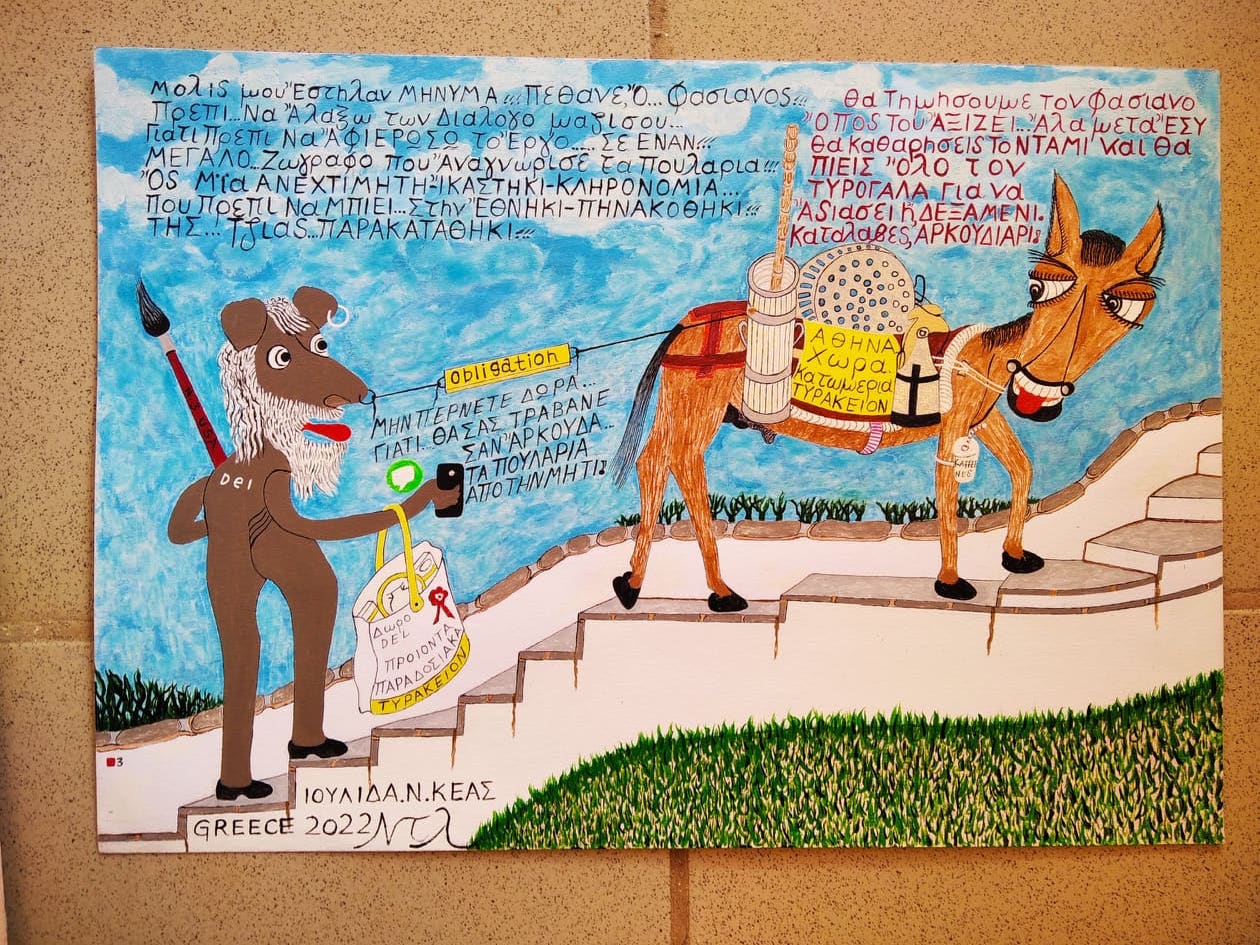 Μολις μου Ἔστηλαν ΜΗΝΥΜΑ!!! ΠΕΘΑΝΕ, Ὁ... Φασιανος!!!
ΠΡΕΠΙ... Να Ἀλαξω των Διαλογο μαζισου...
Γιατι Πρεπι Να ἈΦΙΕΡΩΣΩ το ἜΡΓΟ..... ΣΕ ΕΝΑΝ!!!
ΜΕΓΑΛΟ.. Ζωγραφο που Ἀναγνωρισε τα Πουλαρια!!!
ὉΣ Μια ΑΝΕΧΤΙΜΗΤΗ ἸΚΑΣΤΗΚΙ-ΚΛΗΡΟΝΟΜΙΑ...
που Πρεπι Να ΜΠΙΕΙ... Στην ἘΘΝΗΚΙ-ΠΗΝΑΚΟΘΗΚΙ!!!
ΤΗΣ... Τζιας... ΠΑΡΑΚΑΤΑΘΗΚΙ!!!
Θα Τημησουμε τον Φασιανο
Ὁπος του ἈΞΙΖΕΙ... Ἀλα μετα ἘΣΥ
θα καθαρησεις το ΝΤΑΜΙ και θα
ΠΙΕΙΣ Ὁλο τον
ΤΥΡΟΓΑΛΑ για να
Ἀδιασει ἡ ΔΕΞΑΜΕΝΙ.
Καταλαβες, ἈΡΚΟΥΔΙΑΡΙ;
obligation
ΜΗΝ ΠΕΡΝΕΤΕ ΔΩΡΑ...
ΓΙΑΤΙ... ΘΑ ΣΑΣ ΤΡΑΒΑΝΕ
ΣΑΝ ἈΡΚΟΥΔΑ...
ΤΑ ΠΟΥΛΑΡΙΑ
ΑΠΟ ΤΗΝ ΜΗΤΙ;
ΑΘΗΝΑ
Χωρα
Κατωμερια
ΤΥΡΑΚΕΙΟΝ
ΚΑΦΕΣ
ΝΕΣ
Del
Δωρο
DEL
ΠΡΟΙΟΝΤΑ
ΠΑΡΑΔΟΣΙΑΚΑ
ΤΥΡΑΚΕΙΟΝ
3
ΙΟΥΛΙΔΑ.Ν.ΚΕΑΣ
GREECE 2022 Ντλ